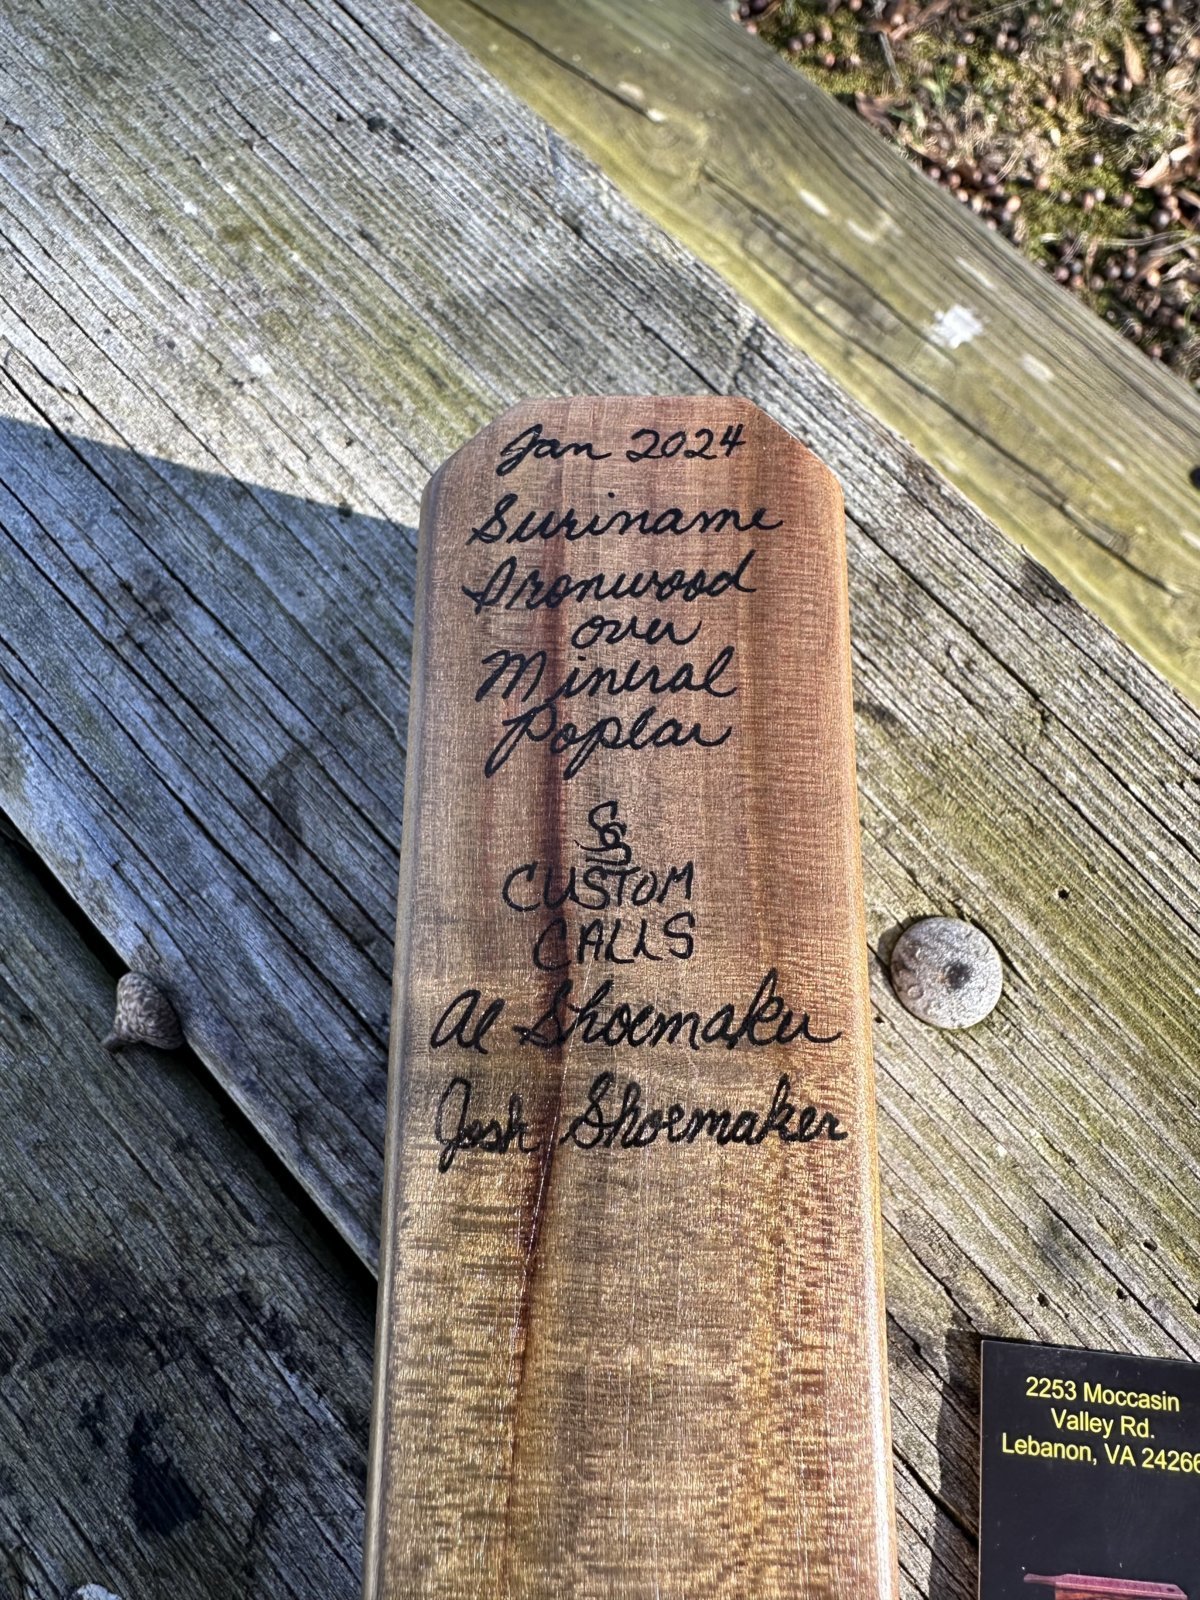 Jan 2024
Suriname
Ironwood
over
Mineral
Poplar
SS
CUSTOM
CALLS
Al Shoemaker
Josh Shoemaker
2253 Moccasin
Valley Rd.
Lebanon, VA 24266